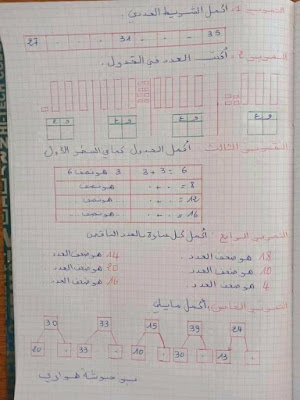 التمرين 1: أكمل الشريط العددي
27 . . . 31 . . . 35
التمرين 2: أكتب العدد في الجدول.
و ع و ع و ع و ع
التمرين الثالث أكمل الجدول كما في السطر الأول
3 + 3 = 6 3 هو نصف 6
. + . = 8 هو نصف
. + . = 12 هو نصف
. + . = 16 هو نصف
التمرين الرابع: أكمل كل عبارة بالعدد الناقص
18 هو ضعف العدد 14 هو ضعف العدد
10 هو ضعف العدد 20 هو ضعف العدد
4 هو ضعف العدد 16 هو ضعف العدد
التمرين الخامس: أكمل ما يلي
30 33 15 39 24
20 . . . 10 . 30 . 13 .